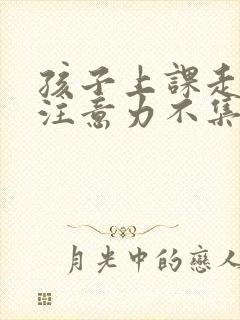 孩子上課走
注意力不集
月光中的戀人